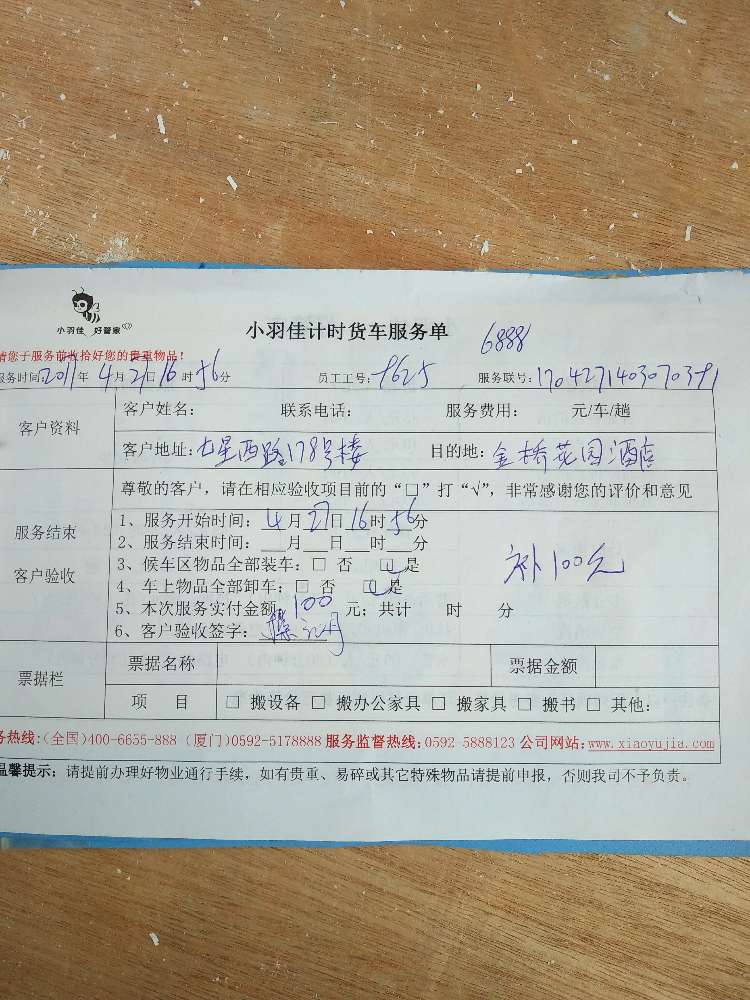 小羽佳 好管家
小羽佳计时货车服务单
6888
请您于服务前收拾好您的贵重物品!
服务时间:2017年4月27日16时56分 员工工号:9625 服务联号:170427140307039
客户资料
客户姓名: 联系电话: 服务费用: 元/车/趟
客户地址:七星西路178号楼 目的地:金桥花园酒店
尊敬的客户,请在相应验收项目前的“□”打“√”,非常感谢您的评价和意见
服务结束
客户验收
1、服务开始时间:4月27日16时56分
2、服务结束时间:___月___日___时___分
3、候车区物品全部装车:□ 否 ☑ 是
4、车上物品全部卸车:□ 否 ☑ 是
补100元
5、本次服务实付金额:100元;共计 时 分
6、客户验收签字:
票据栏
票据名称 票据金额
项 目 □ 搬设备 □ 搬办公家具 □ 搬家具 □ 搬书 □ 其他:
务热线:(全国)400-6655-888 (厦门)0592-5178888 服务监督热线:0592 5888123 公司网站:www.xiaoyujia.com
温馨提示:请提前办理好物业通行手续,如有贵重、易碎或其它特殊物品请提前申报,否则我司不予负责。